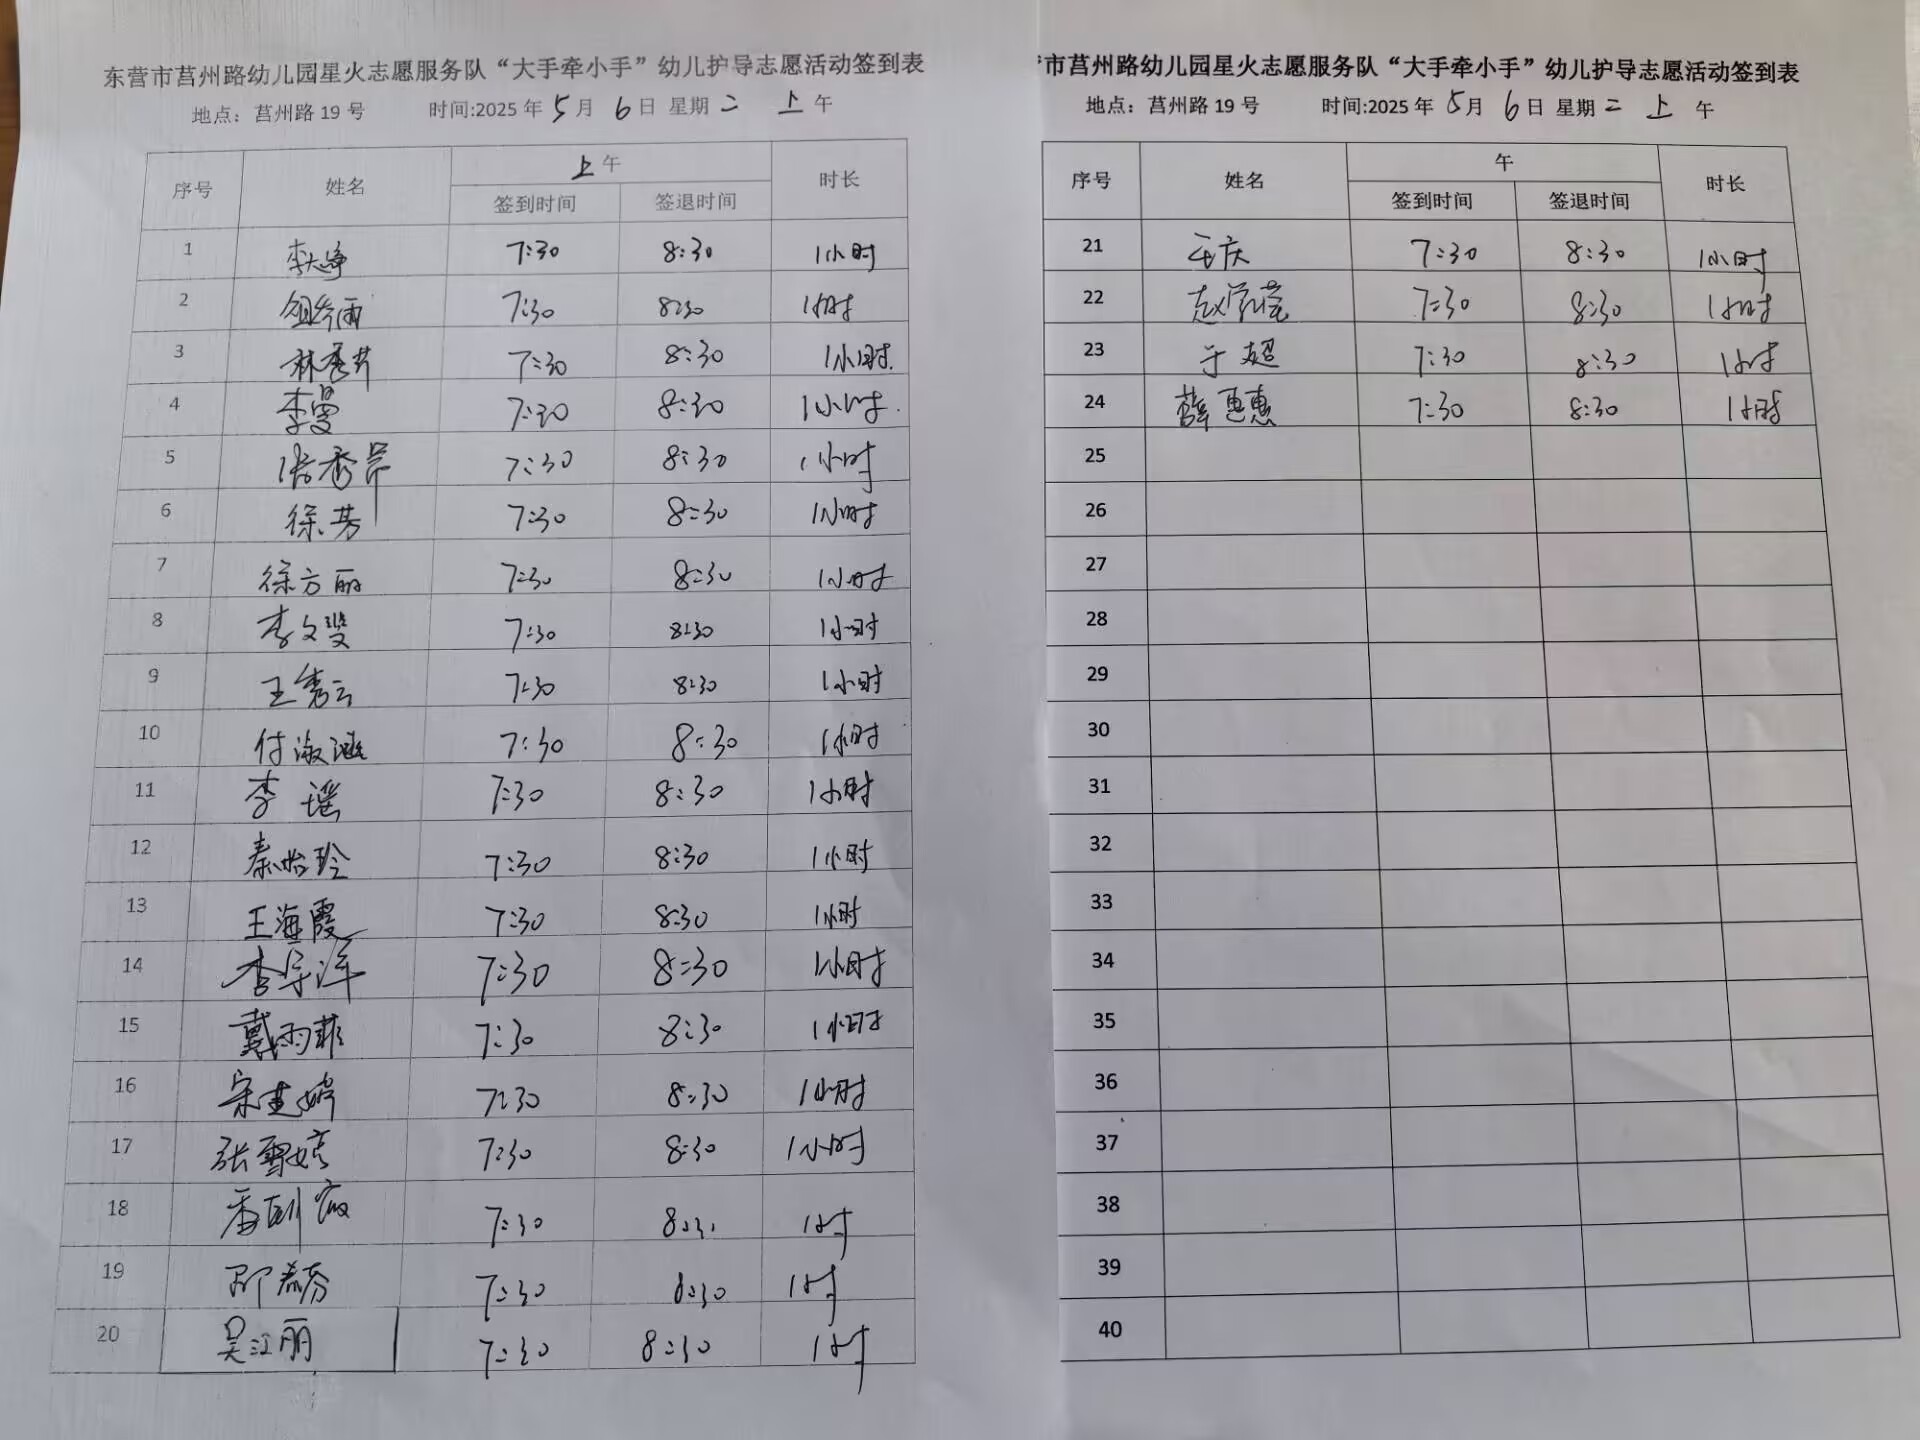 东营市莒州路幼儿园星火志愿服务队“大手牵小手”幼儿护导志愿活动签到表
地点：莒州路 19 号 时间:2025 年 5 月 6 日 星期 二 上 午
序号 姓名 上午 时长
签到时间 签退时间
1 7:30 8:30 1小时
2 7:30 8:30 1小时
3 林秀芹 7:30 8:30 1小时.
4 李曼 7:30 8:30 1小时.
5 张秀芹 7:30 8:30 1小时
6 徐芳 7:30 8:30 1小时
7 徐方丽 7:30 8:30 1小时
8 李文斐 7:30 8:30 1小时
9 王秀云 7:30 8:30 1小时
10 付淑涵 7:30 8:30 1小时
11 李瑶 7:30 8:30 1小时
12 秦怡玲 7:30 8:30 1小时
13 王海霞 7:30 8:30 1小时
14 李 洋 7:30 8:30 1小时
15 戴雨菲 7:30 8:30 1小时
16 宋建婷 7:30 8:30 1小时
17 张雪婷 7:30 8:30 1小时
18 7:30 8:30 1小时
19 7:30 8:30 1小时
20 吴江丽 7:30 8:30 1小时
市莒州路幼儿园星火志愿服务队“大手牵小手”幼儿护导志愿活动签到表
地点：莒州路 19 号 时间:2025 年 5 月 6 日 星期 二 上 午
序号 姓名 午 时长
签到时间 签退时间
21 7:30 8:30 1小时
22 7:30 8:30 1小时
23 于超 7:30 8:30 1小时
24 薛惠惠 7:30 8:30 1小时
25
26
27
28
29
30
31
32
33
34
35
36
37
38
39
40